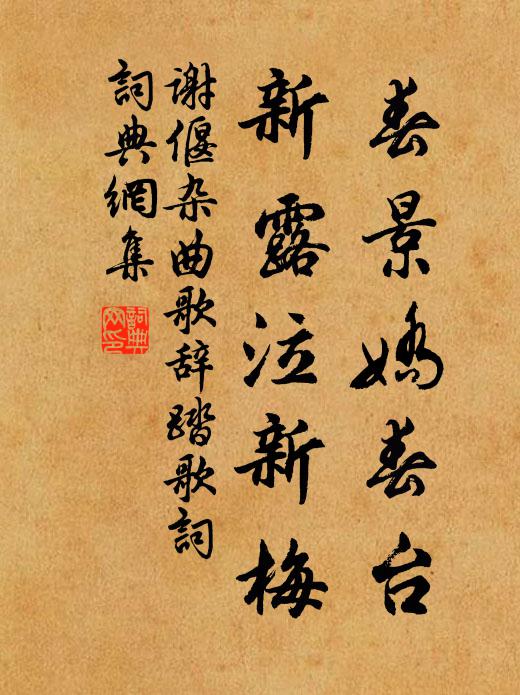 春景娇春台
新露泣新梅
谢偃杂曲歌辞踏歌詞
詞典網集
詞典網印